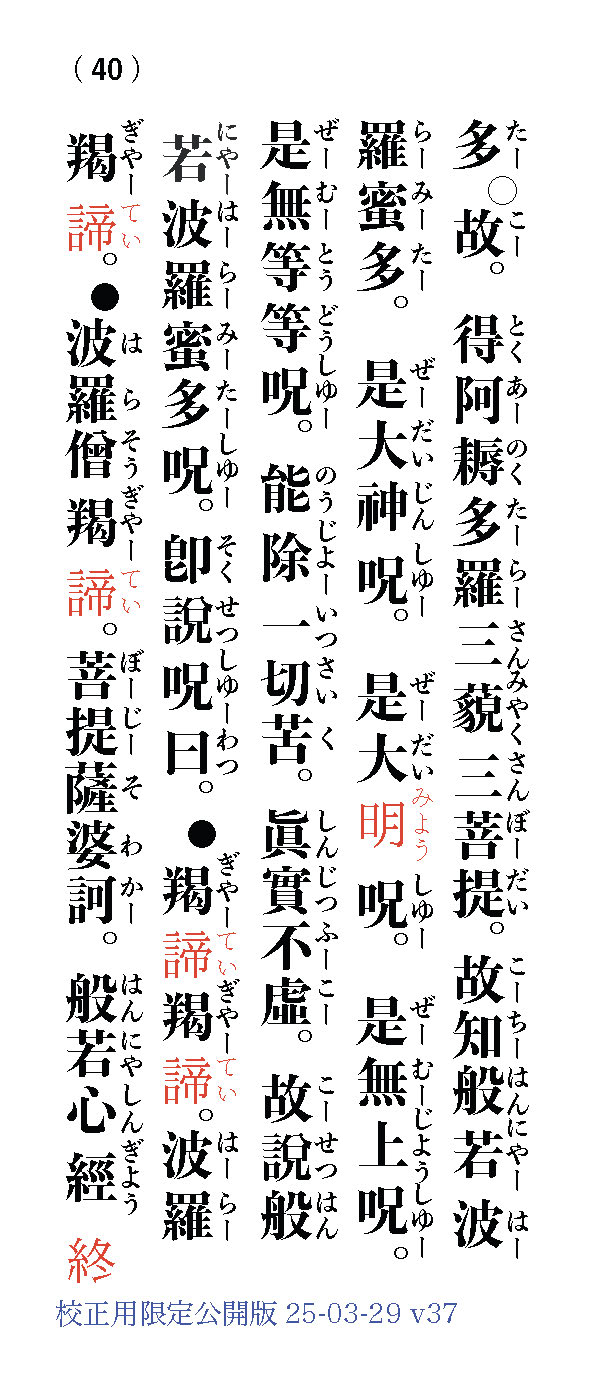 （40）
多○故。 得阿耨多羅三藐三菩提。故知般若波
たーこー とくあーのくたーらーさんみやくさんぼーだい こーちーはんにやーはー
羅蜜多。 是大神呪。 是大明呪。 是無上呪。
らーみーたー ぜーだいじんしゆー ぜーだいみようしゆー ぜーむーじようしゆー
是無等等呪。能除一切苦。眞實不虛。故說般
ぜーむーとうどうしゆー のうじよーいつさいく しんじつふーこー こーせつはん
若波羅蜜多呪。卽說呪曰。●羯諦羯諦。波羅
にやーはーらーみーたーしゆー そくせつしゆーわつ ぎやーていぎやーてい はーらー
羯諦。●波羅僧羯諦。菩提薩婆訶。 般若心經 終
ぎやーてい はらそうぎやーてい ぼーじーそわかー はんにやしんぎよう
校正用限定公開版 25-03-29 v37